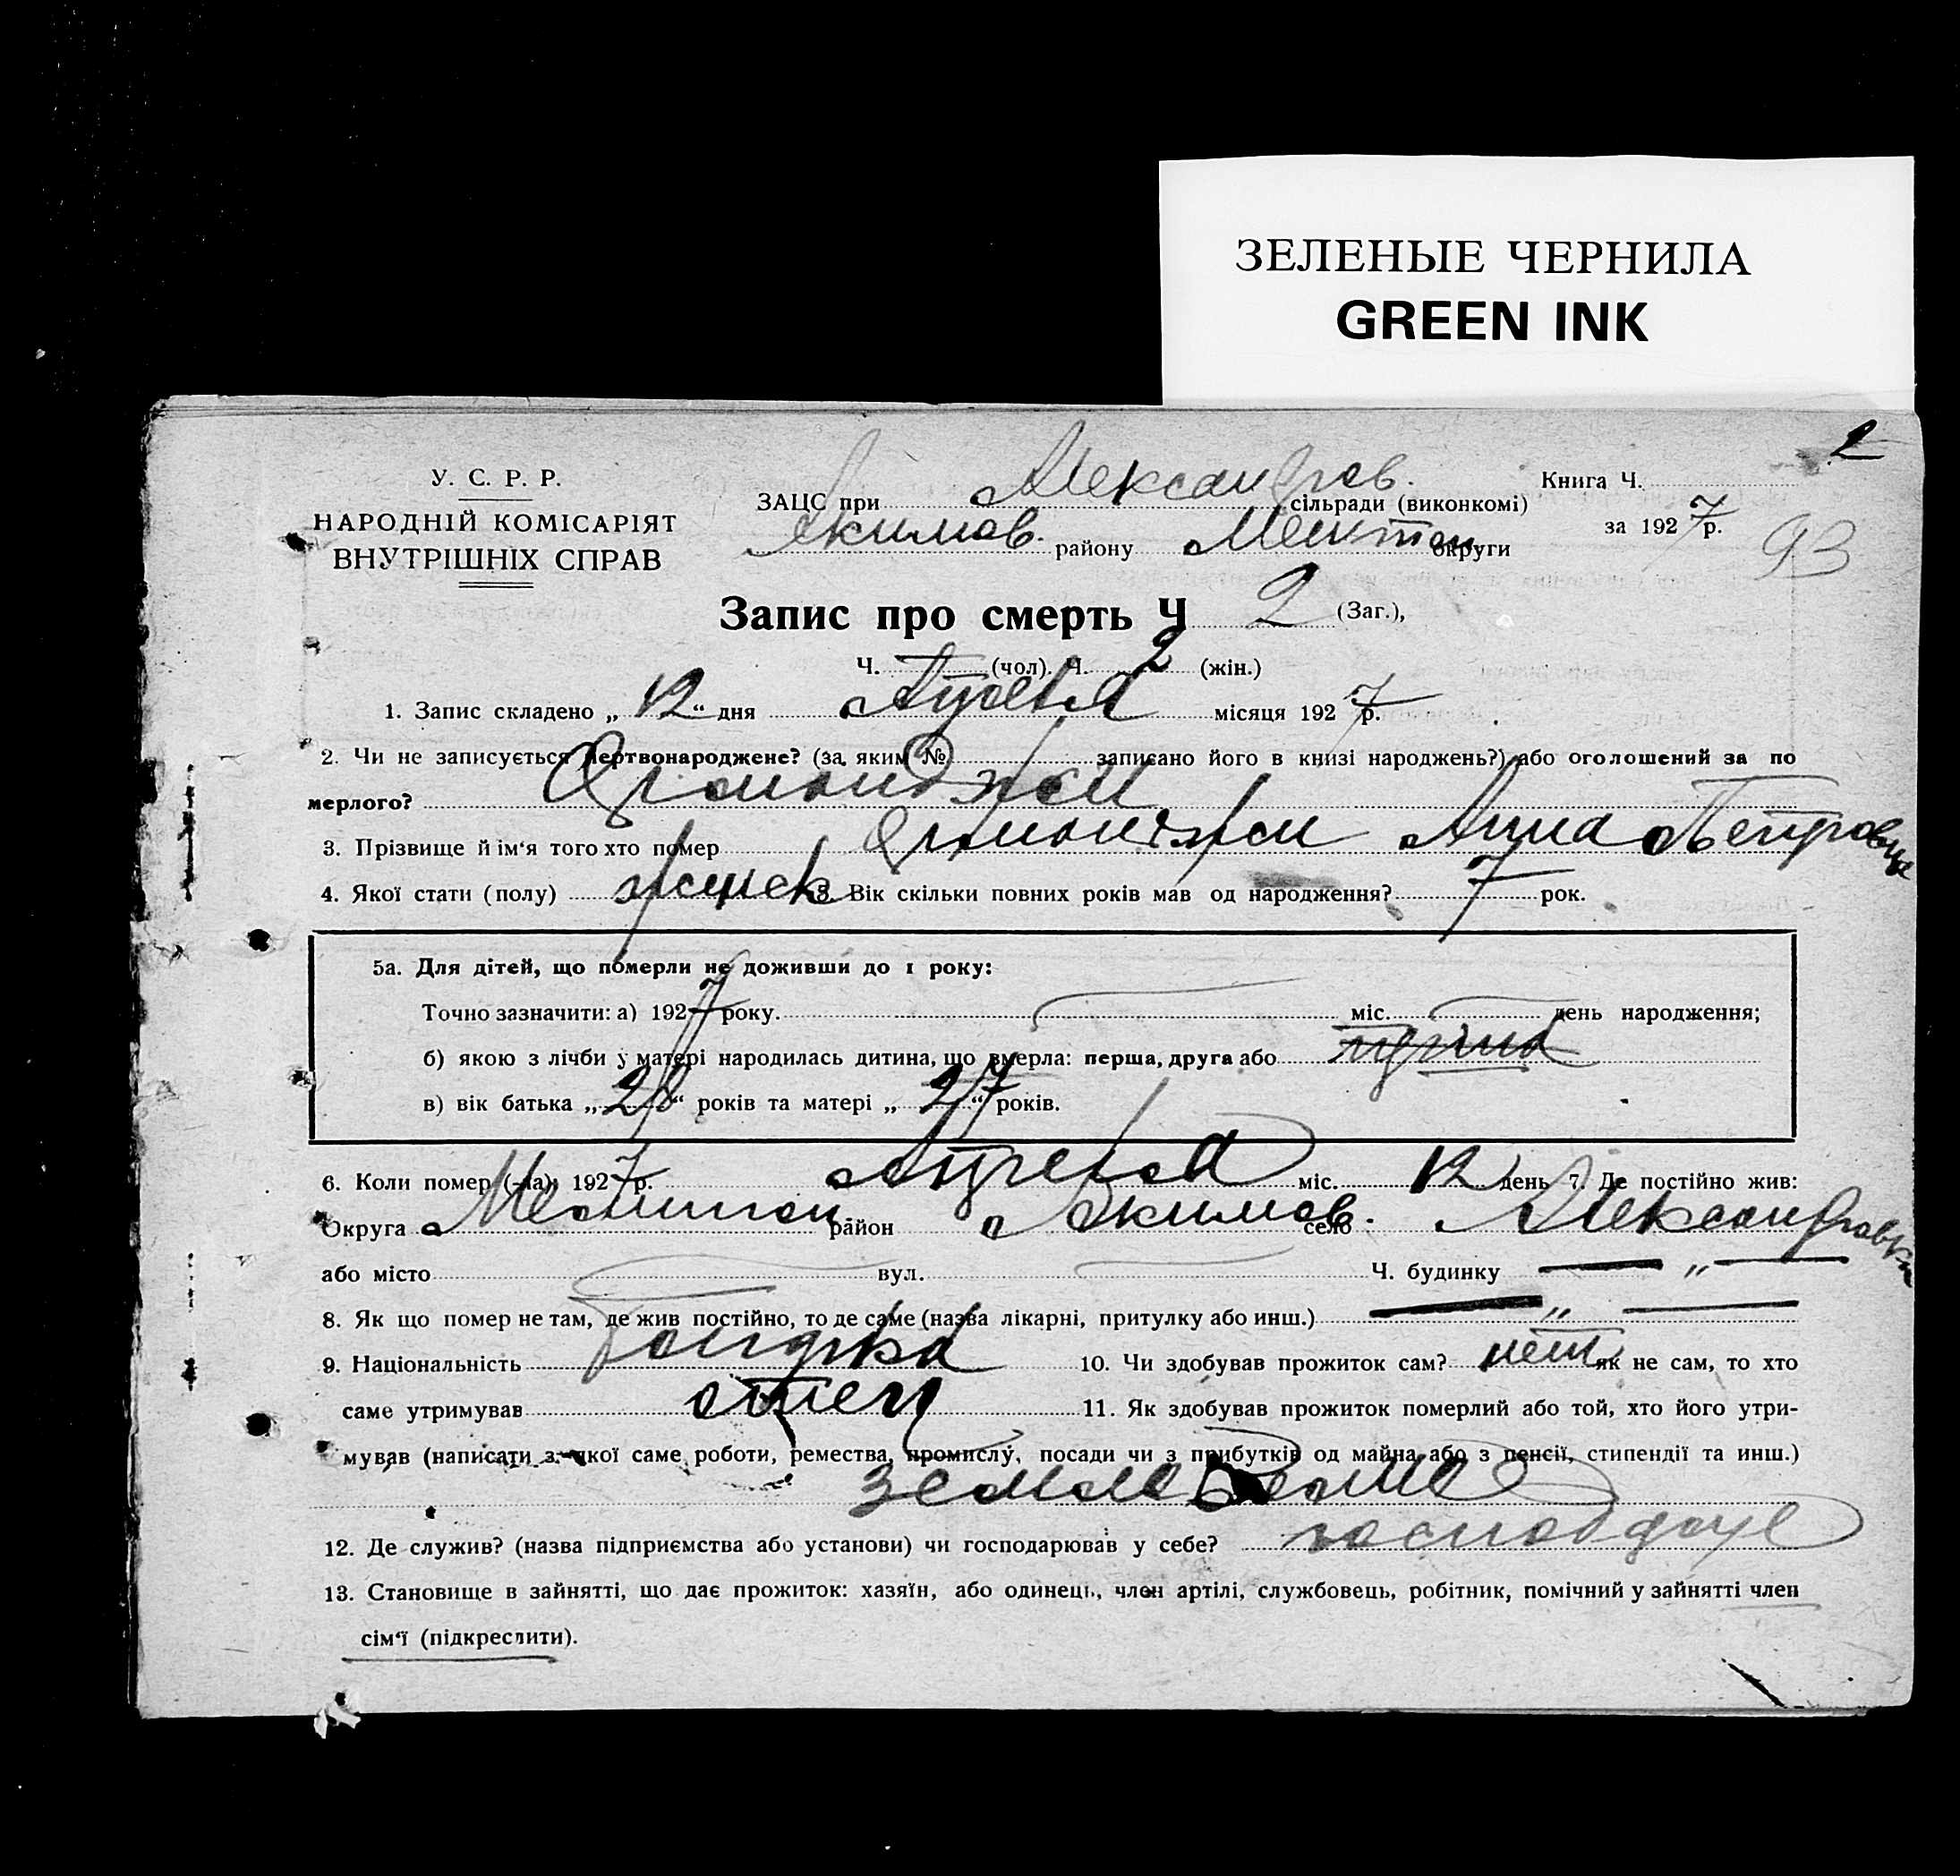 ЗЕЛЕНЫЕ ЧЕРНИЛА
GREEN INK
2
У. С. Р. Р.
НАРОДНІЙ КОМІСАРІЯТ
ВНУТРІШНІХ СПРАВ
ЗАЦС при Александров. сільради (виконкомі)
Якимов. району округи
Книга Ч.
за 1927 р.
93
Запис про смерть Ч 2 (Заг.),
Ч. (чол). Ч. 2 (жін.)
1. Запис складено „ 12 “ дня Апреля місяця 1927 р.
2. Чи не записується мертвонароджене? (за яким № записано його в книзі народжень?) або оголошений за по
мерлого?
3. Прізвище й ім‘я того хто помер Анна Петровна
4. Якої стати (полу) женск 5. Вік скільки повних років мав од народження? 7 рок.
5а. Для дітей, що померли не доживши до 1 року:
Точно зазначити: а) 1927 року. міс. день народження;
б) якою з лічби у матері народилась дитина, що вмерла: перша, друга або
в) вік батька „ 28 “ років та матері „ 27 “ років.
6. Коли помер (-ла): 1927 р. Апреля міс. 12 день 7. Де постійно жив:
Округа Мелитоп. район Якимов. село Александровка
або місто вул. Ч. будинку — „ —
8. Як що помер не там, де жив постійно, то де саме (назва лікарні, притулку або инш.) — „ —
9. Національність 10. Чи здобував прожиток сам? нет як не сам, то хто
саме утримував отец 11. Як здобував прожиток померлий або той, хто його утри-
мував (написати з якої саме роботи, ремества, промислу, посади чи з прибутків од майна або з пенсії, стипендії та инш.)
12. Де служив? (назва підприємства або установи) чи господарював у себе?
13. Становище в зайнятті, що дає прожиток: хазяїн, або одинець, член артілі, службовець, робітник, помічний у зайнятті член
сім‘ї (підкреслити).